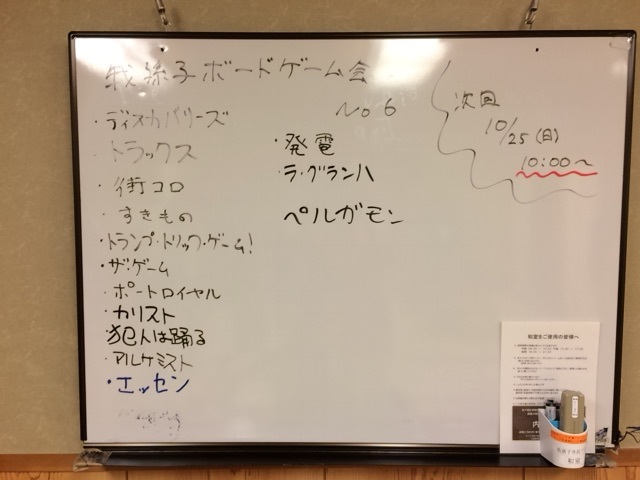 我孫子ボードゲーム会
No 6
・ディスカバリーズ
・トラックス
・街コロ
・すきもの
・トランプ・トリック・ゲーム!
・ザ・ゲーム
・ポートロイヤル
・カリスト
・犯人は踊る
・アルケミスト
・エッセン
・発電
・ラ・グランハ
ペルガモン
次回
10/25(日)
10:00～
和室をご使用の皆様へ
和室